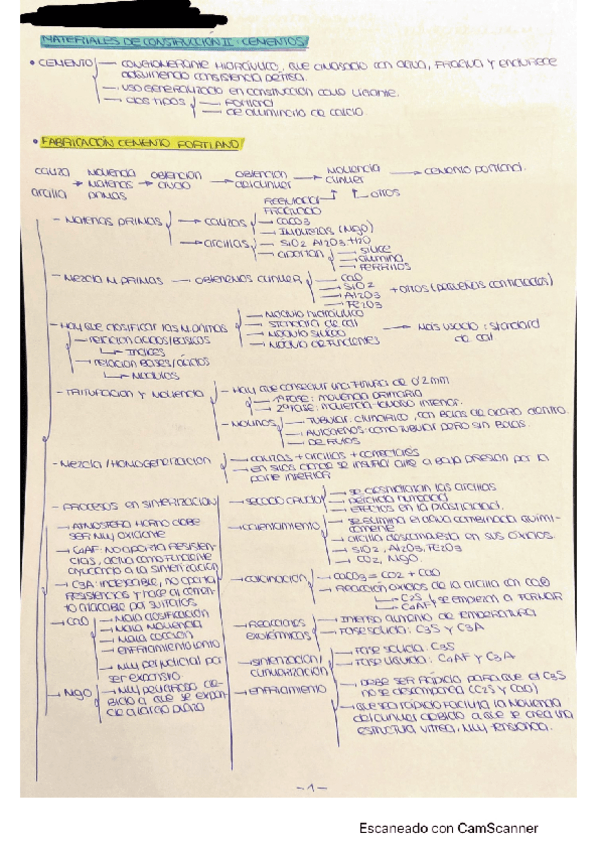 MATERIALES DE CONSTRUCCIÓN II: CEMENTOS
• CEMENTO — conglomerante hidráulico, que amasado con agua, fragua y endurece
adquiriendo consistencia pétrea.
→ uso generalizado en construcción como ligante.
→ dos tipos → Portland
→ de aluminato de calcio
• FABRICACIÓN CEMENTO PORTLAND
caliza molienda obtención → obtención → molienda → cemento portland.
→ materias crudo del clinker clinker
arcilla primas
regulador otros
fraguado
- Materias primas → calizas → CaCO3
→ impurezas (MgO)
→ arcillas → SiO2 Al2O3 H2O
→ aportan → sílice
→ alúmina
→ ferritos
- Mezcla m. primas → obtenemos clinker → CaO
→ SiO2 + otros (pequeñas cantidades)
→ Al2O3
→ Fe2O3
- Hay que dosificar las m. primas → módulo hidráulico
→ standard de cal → más usado: standard
→ relación ácidos/básicos → módulo silícico de cal
→ índices → módulo de fundentes
→ relación bases/ácidos
→ módulos
- Trituración y molienda - Hay que conseguir una finura de 0'2mm
→ 1ª fase: molienda primaria
→ 2ª fase: molienda tamaño inferior.
- molinos → tubular: cilíndrico, con bolas de acero dentro.
→ autógenos: como tubular pero sin bolas.
→ de rulos
- Mezcla/Homogeneización → calizas + arcillas + correctores
→ en silos donde se insufla aire a baja presión por la
parte inferior
- Procesos en sinterización
→ atmósfera horno debe
ser muy oxidante
→ C4AF: no aporta resisten-
cias, actúa como fundente
ayudando a la sinterización
→ C3A: indeseable, no aporta
resistencias y hace al cemen-
to atacable por sulfatos
→ CaO → mala dosificación
→ mala molienda
→ mala cocción
→ enfriamiento lento
→ muy perjudicial por
ser expansivo
→ MgO → muy peligroso de-
bido a que se expan-
de a largo plazo
→ secado crudo → se deshidratan las arcillas
→ pérdida humedad
→ efectos en la plasticidad.
→ calentamiento → se elimina el agua combinada quími-
camente
→ arcilla descompuesta en sus óxidos.
→ SiO2, Al2O3, Fe2O3
→ CO2, MgO.
→ calcinación → CaCO3 = CO2 + CaO
→ reacción óxidos de la arcilla con CaO
→ C2S se empiezan a formar
→ C4AF
→ reacciones → intenso aumento de temperatura
exotérmicas → fase sólida: C3S y C3A
→ sinterización/ → fase sólida: C3S
clinkerización → fase líquida: C4AF y C3A
→ enfriamiento → debe ser rápido para que el C3S
no se descomponga (C2S y CaO)
→ que sea rápido facilita la molienda
del clinker debido a que se crea una
estructura vítrea, muy tensionada.
-1-
Escaneado con CamScanner